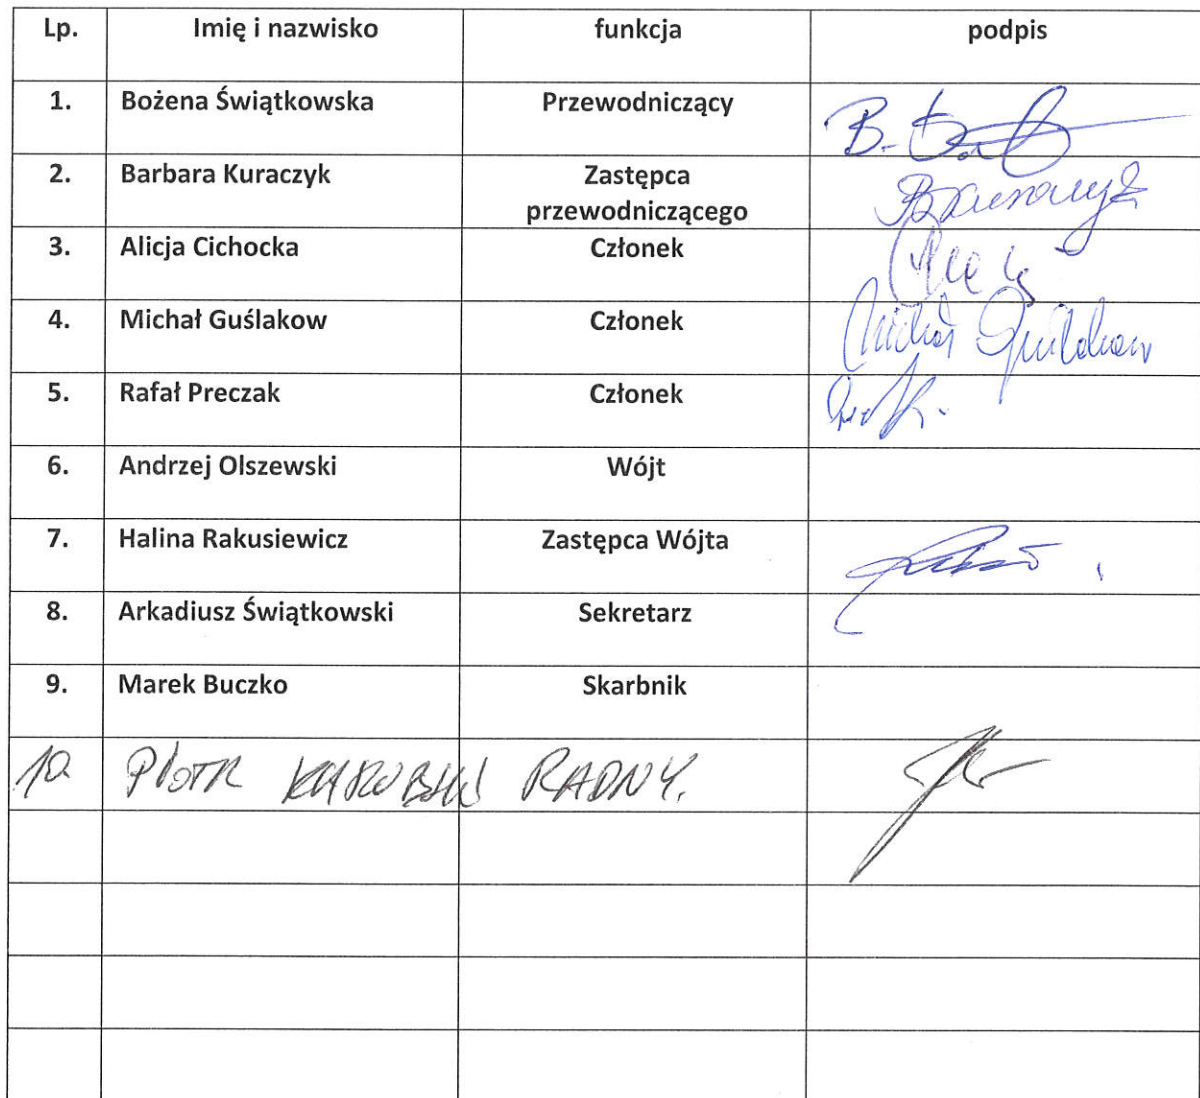 Lp. Imię i nazwisko funkcja podpis
1. Bożena Świątkowska Przewodniczący
2. Barbara Kuraczyk Zastępca
przewodniczącego
3. Alicja Cichocka Członek
4. Michał Guślakow Członek Michał
5. Rafał Preczak Członek
6. Andrzej Olszewski Wójt
7. Halina Rakusiewicz Zastępca Wójta
8. Arkadiusz Świątkowski Sekretarz
9. Marek Buczko Skarbnik
10. PIOTR RADNY.